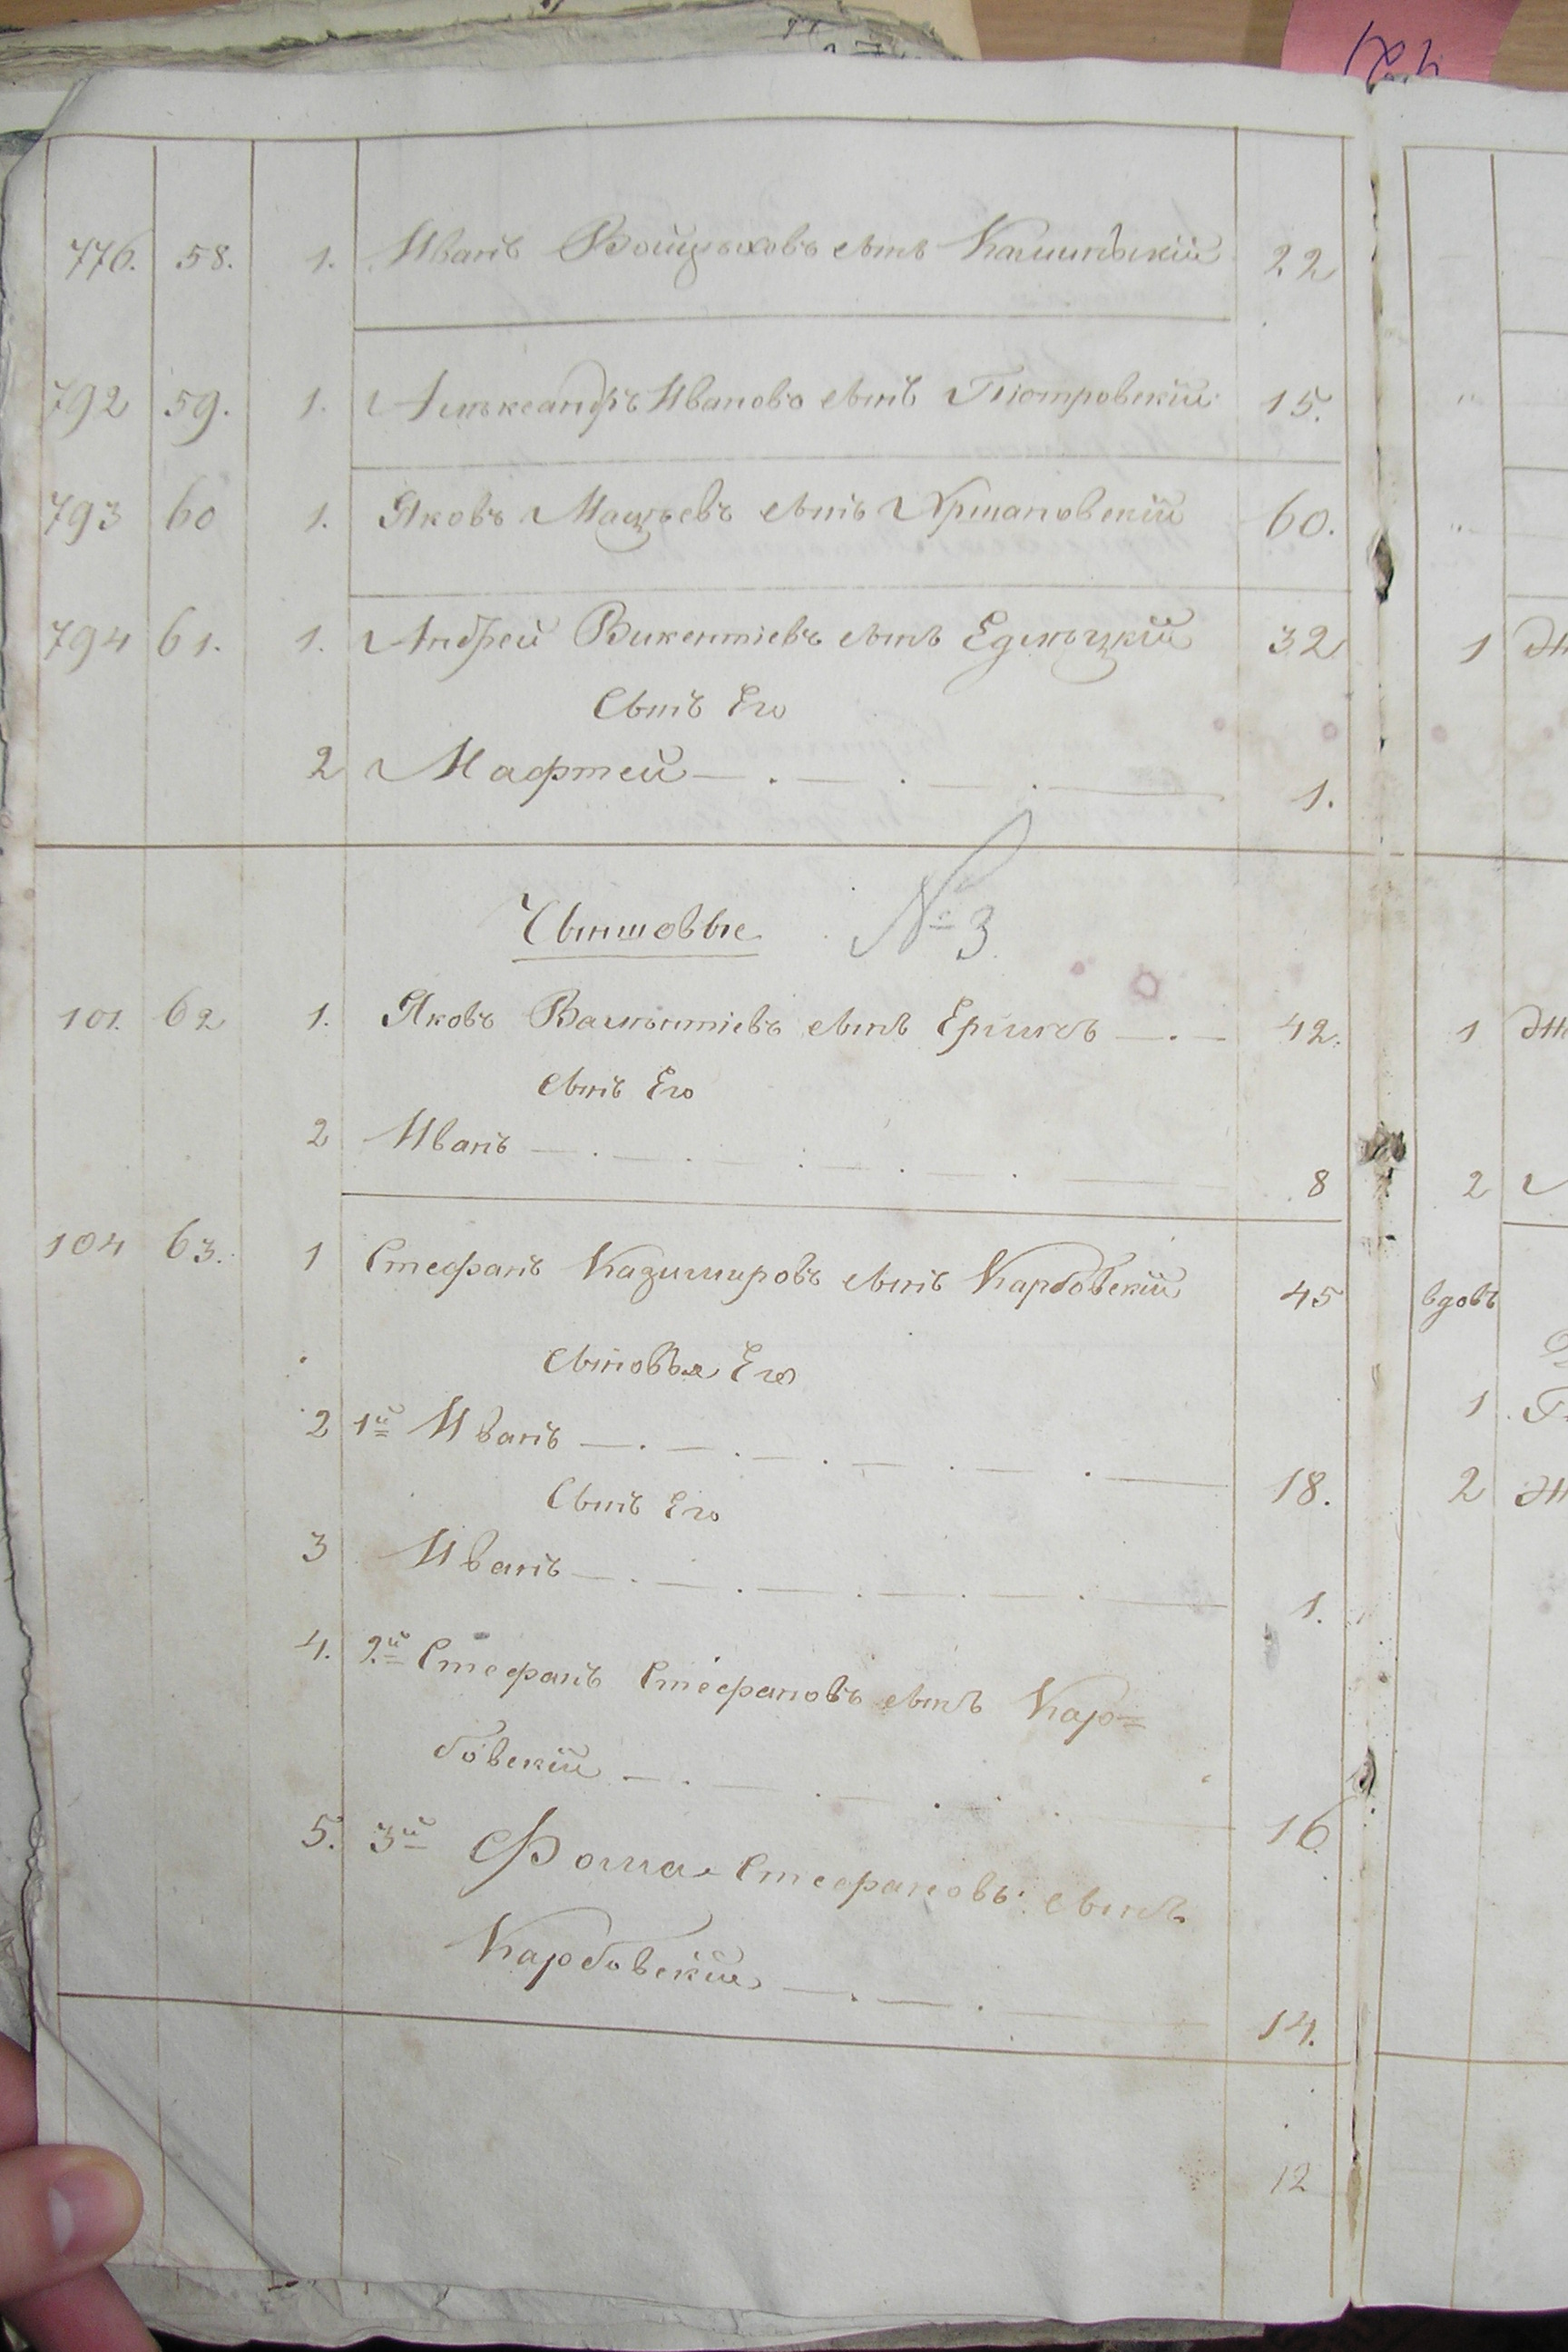 776. 58. 1. Иванъ Войцѣховъ сынъ Каминскій 22
792 59. 1. Александръ Ивановъ сынъ Піотровскій 15.
793 60 1. Яковъ Мацѣевъ сынъ 60.
794 61. 1. Андрей Викентіевъ сынъ 32 1
Сынъ Его
2 Мафтей 1.
Чыншовые № 3
101. 62 1. Яковъ Валентіевъ сынъ 42. 1
сынъ Его
2 Иванъ 8 2
104 63. 1 Стефанъ Казимировъ сынъ Карбовскій 45 вдовъ
сыновья Его
2 1й Иванъ 18. 1
Сынъ Его 2
3 Иванъ 1.
4. 2й Стефанъ Стефановъ сынъ Кар=
бовскій 16.
5. 3й Фома Стефановъ сынъ
Карбовскій 14.
12